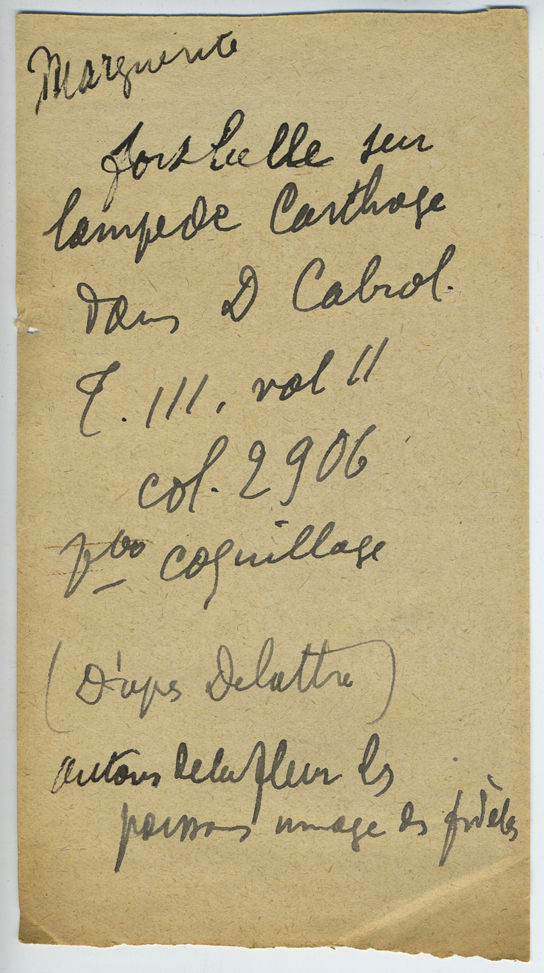 Marguerite
fort belle sur
lampe de Carthage
dans D Cabrol.
T. III, vol II
col. 2906
vbo coquillage
(D'aps Delattre)
autour de la fleur les
poissons image des fidèles